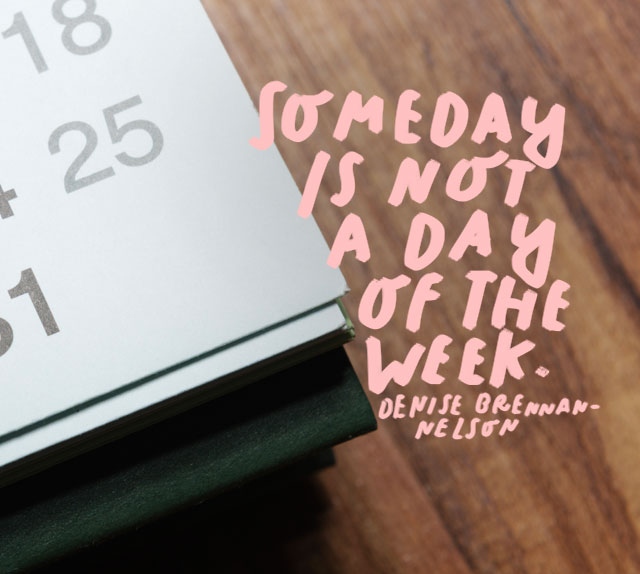 18
25
31
SOMEDAY
IS NOT
A DAY
OF THE
WEEK.
DENISE BRENNAN-
NELSON